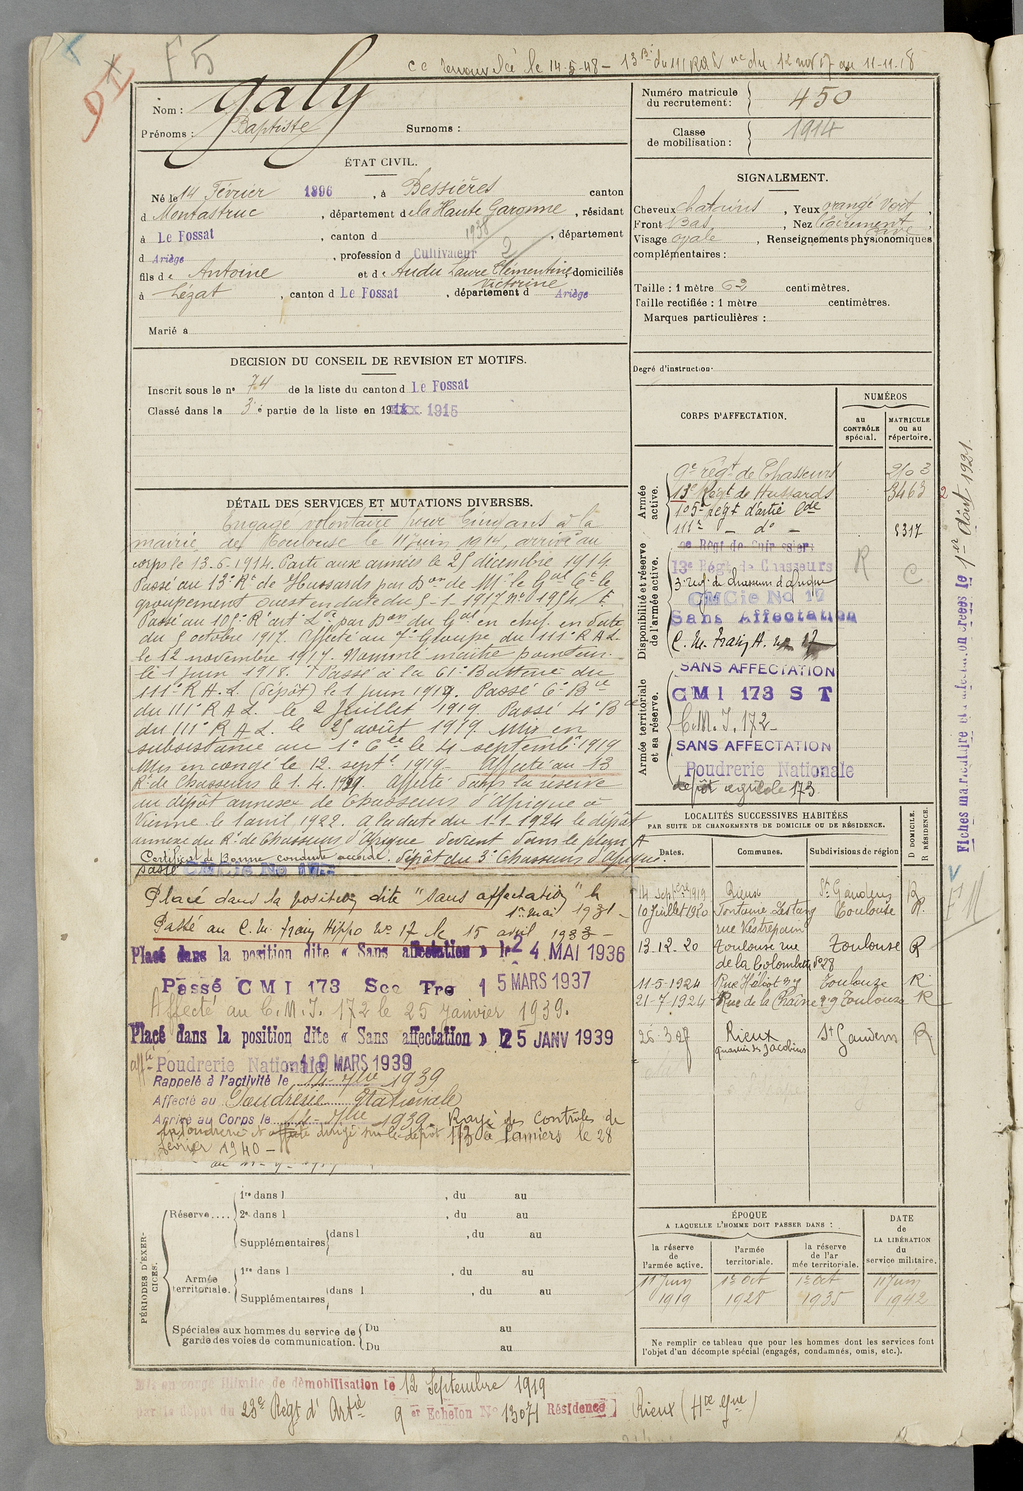 F5
91
le 14-5-48 - 13e Bie du 111 RAL du 12 nov 17 au 11-11-18
Nom : Galy
Prénoms : Baptiste Surnoms :
Numéro matricule du recrutement : 450
Classe de mobilisation : 1914
ÉTAT CIVIL.
Né le 14 Février 1896, à Bessières canton
d Montastruc, département de la Haute Garonne, résidant
à Le Fossat, canton d 1938, département
d Ariège, profession d Cultivateur 2
fils de Antoine et de Audu Laure Clémentine Victorine domiciliés
à Lézat, canton d Le Fossat, département d Ariège
Marié a
SIGNALEMENT.
Cheveux chatains, Yeux orangé vert,
Front Bas, Nez Légèrement cave
Visage ovale, Renseignements physionomiques
complémentaires :
Taille : 1 mètre 62 centimètres.
Taille rectifiée : 1 mètre centimètres.
Marques particulières :
Degré d'instruction
DECISION DU CONSEIL DE REVISION ET MOTIFS.
Inscrit sous le n° 74 de la liste du canton d Le Fossat
Classé dans la 3e partie de la liste en 19 1915
DÉTAIL DES SERVICES ET MUTATIONS DIVERSES.
Engagé volontaire pour cinq ans à la
mairie de Toulouse le 11 juin 1914, arrivé au
corps le 13.6.1914. Parti aux armées le 25 décembre 1914
Passé au 13e Rt de Hussards par Don de Mr le Gal Ct le
groupement Ouest en date du 5-1-1917 n° 1954/E.
Passé au 105e R. art. L. par Don du Gal en chef en date
du 5 octobre 1917. Affecté au 7e Groupe du 111e R.A.L.
le 12 novembre 1917. Nommé maitre pointeur
le 1 juin 1918. Passé à la 61e Batterie du
111e R.A.L. (dépôt) le 1 juin 1919. Passé 6e Bie
du 111e R.A.L. le 2 Juillet 1919. Passé 4e Bie
du 111e R.A.L. le 25 août 1919 Mis en
subsistance au 1e Cie le 4 septembre 1919
Mis en congé le 12 septe 1919. Affecté au 13
Rt de Chasseurs le 1.4.1921. Affecté dans la réserve
au dépôt annexe de Chasseurs d'Afrique à
Vienne le 1 avril 1922. A la date du 1.1.1924 le dépôt
annexe du Rt de Chasseurs d'Afrique devient dans le plan A
Certificat de Bonne conduite accordé. dépôt du 3e Chasseurs d'Afrique.
Passé CMCie No
Placé dans la position dite "sans affectation" le
1er mai 1931 -
Passé au C.M. Train Hippo No 17 le 15 avril 1933 -
Placé dans la position dite « Sans affectation » le 24 MAI 1936
Passé CMI 173 Sec Tre 15 MARS 1937
Affecté au C.M.I. 172 le 25 Janvier 1939.
Placé dans la position dite « Sans affectation » 25 JANV 1939
affté Poudrerie Nationale 10 MARS 1939
Rappelé à l'activité le 14-7bre 1939
Affecté au Poudrerie Nationale
Arrivé au Corps le 14-7bre 1939. Rayé des Contrôles de
la poudrerie et dirigé sur le dépôt 173 à Pamiers le 28
février 1940 -
CORPS D'AFFECTATION.
NUMÉROS
au CONTRÔLE spécial.
MATRICULE ou au répertoire.
Armée active.
9e régt de Chasseurs 2103
13e Régt de Hussards 3463
105e Régt d'artie Lde
111e - do - 8317
Disponibilité et réserve de l'armée active.
13e Régt de Chasseurs R C
3e régt de chasseurs d'afrique
CMCie No 17
Sans Affectation
C. M. Train H. no 17
Armée territoriale et sa réserve.
SANS AFFECTATION
CMI 173 S T
C.M.I. 172 -
SANS AFFECTATION
Poudrerie Nationale
dépôt agricole 173
Fiches matriculaire et créées le 1er Août 1921.
LOCALITÉS SUCCESSIVES HABITÉES
PAR SUITE DE CHANGEMENTS DE DOMICILE OU DE RÉSIDENCE.
Dates. Communes. Subdivisions de région D DOMICILE. R RÉSIDENCE.
14 Septbre 1919 Rieux St Gaudens D
10 Juillet 1920 Fontaine Lestang Toulouse R.
rue Vestrepain
13.12.20 Toulouse rue Toulouse R
de la Colombette n°28
11-5-1924 Rue Héliot 37 Toulouse R
21-7-1924 Rue de la Chaîne 29 Toulouse R
26-3-27 Rieux St Gaudens R
quartier des Jacobins
PÉRIODES D'EXERCICES.
Réserve.... 1re dans l , du au
2e dans l , du au
Supplémentaires dans l , du au
, du au
Armée territoriale. 1re dans l , du au
Supplémentaires dans l , du au
, du au
Spéciales aux hommes du service de garde des voies de communication. Du au
Du au
ÉPOQUE
A LAQUELLE L'HOMME DOIT PASSER DANS :
DATE DE LA LIBÉRATION du service militaire.
la réserve de l'armée active. l'armée territoriale. la réserve de l'armée territoriale.
11 juin 1919 1er Oct 1928 1er Oct 1935 11 juin 1942
Ne remplir ce tableau que pour les hommes dont les services font
l'objet d'un décompte spécial (engagés, condamnés, omis, etc.).
Mis en congé illimité de démobilisation le 12 Septembre 1919
par le dépôt du 23e Régt d'Artie 9 er Echelon No 13071 Résidence] Rieux (Hte Gne)